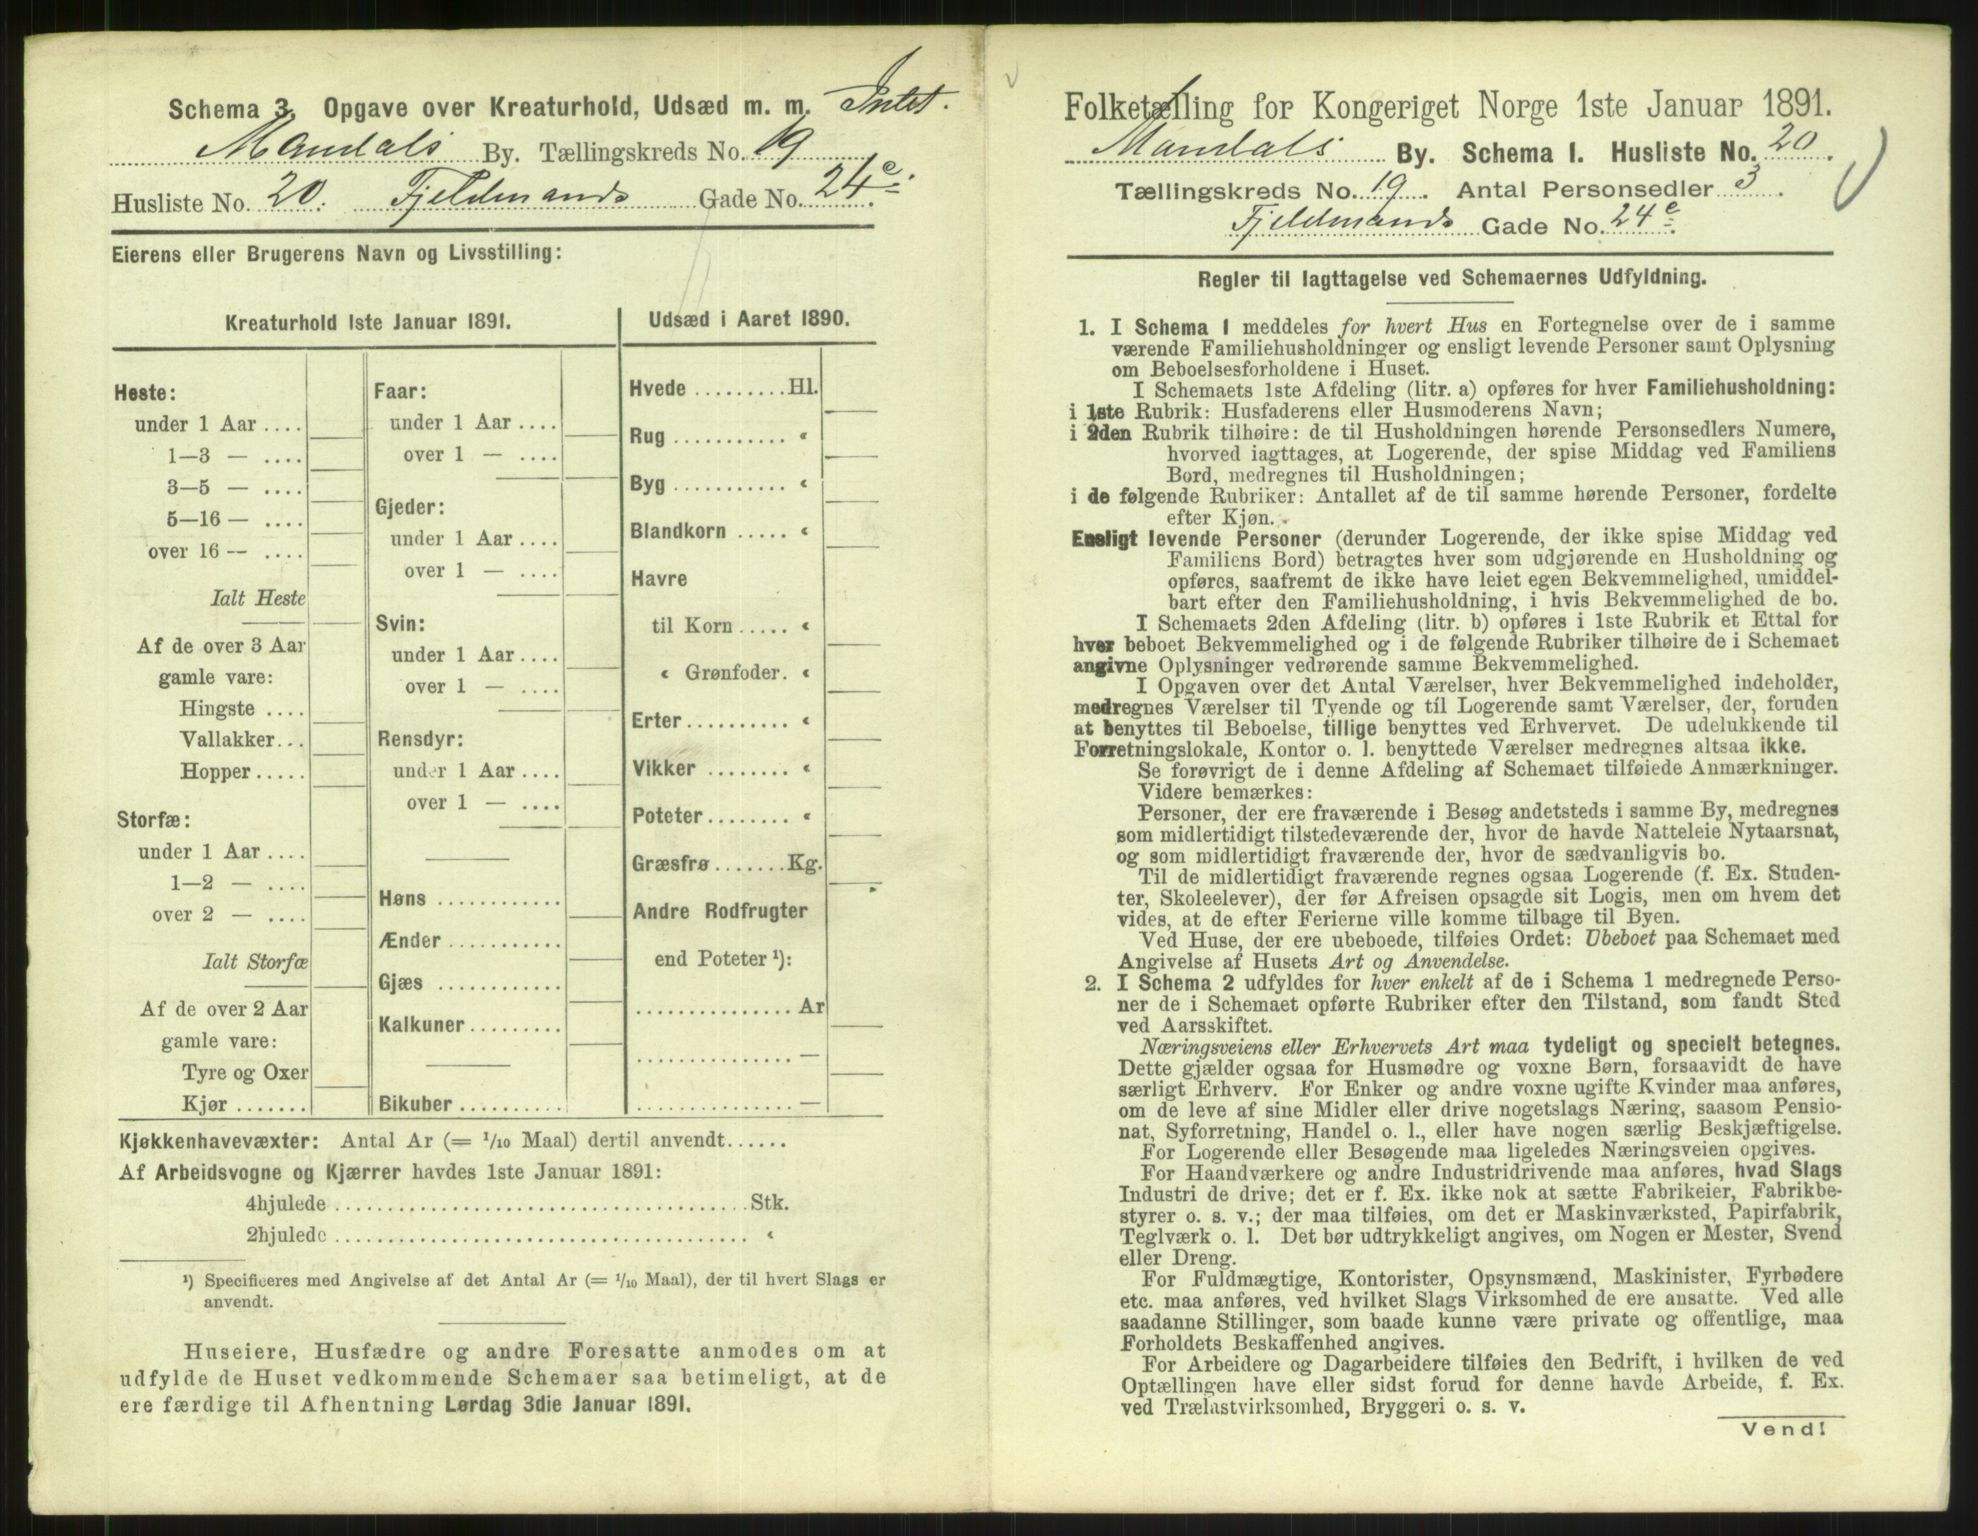 Schema 3. Opgave over Kreaturhold, Udsæd m. m. Intet.
Mandals By. Tællingskreds No. 19
Husliste No. 20. Fjeldmands Gade No. 24e.
Eierens eller Brugerens Navn og Livsstilling:
Kreaturhold 1ste Januar 1891.
Heste:
under 1 Aar ....
1—3 — ....
3—5 — ....
5—16 — ....
over 16 — ....
Ialt Heste
Af de over 3 Aar
gamle vare:
Hingste ....
Vallakker...
Hopper.....
Storfæ:
under 1 Aar ....
1—2 — ....
over 2 — ....
Ialt Storfæ
Af de over 2 Aar
gamle vare:
Tyre og Oxer
Kjør .......
Faar:
under 1 Aar ....
over 1 — ....
Gjeder:
under 1 Aar ....
over 1 — ....
Svin:
under 1 Aar ....
over 1 — ....
Rensdyr:
under 1 Aar ....
over 1 — ....
Høns ............
Ænder ...........
Gjæs ............
Kalkuner .........
Bikuber ..........
Udsæd i Aaret 1890.
Hvede .........Hl.
Rug ........... «
Byg ........... «
Blandkorn ..... «
Havre
til Korn ..... «
« Grønfoder. «
Erter.......... «
Vikker ........ «
Poteter........ «
Græsfrø .......Kg.
Andre Rodfrugter
end Poteter ¹):
............... Ar
............... —
............... —
Kjøkkenhavevæxter: Antal Ar (= 1/10 Maal) dertil anvendt......
Af Arbeidsvogne og Kjærrer havdes 1ste Januar 1891:
4hjulede ......................................Stk.
2hjulede ...................................... «
¹) Specificeres med Angivelse af det Antal Ar (= 1/10 Maal), der til hvert Slags er
anvendt.
Huseiere, Husfædre og andre Foresatte anmodes om at
udfylde de Huset vedkommende Schemaer saa betimeligt, at de
ere færdige til Afhentning Lørdag 3die Januar 1891.
Folketælling for Kongeriget Norge 1ste Januar 1891.
Mandals By. Schema I. Husliste No. 20.
Tællingskreds No. 19. Antal Personsedler 3.
Fjeldmands Gade No. 24e.
Regler til Iagttagelse ved Schemaernes Udfyldning.
1. I Schema I meddeles for hvert Hus en Fortegnelse over de i samme
værende Familiehusholdninger og ensligt levende Personer samt Oplysning
om Beboelsesforholdene i Huset.
I Schemaets 1ste Afdeling (litr. a) opføres for hver Familiehusholdning:
i 1ste Rubrik: Husfaderens eller Husmoderens Navn;
i 2den Rubrik tilhøire: de til Husholdningen hørende Personsedlers Numere,
hvorved iagttages, at Logerende, der spise Middag ved Familiens
Bord, medregnes til Husholdningen;
i de følgende Rubriker: Antallet af de til samme hørende Personer, fordelte
efter Kjøn.
Ensligt levende Personer (derunder Logerende, der ikke spise Middag ved
Familiens Bord) betragtes hver som udgjørende en Husholdning og
opføres, saafremt de ikke have leiet egen Bekvemmelighed, umiddel-
bart efter den Familiehusholdning, i hvis Bekvemmelighed de bo.
I Schemaets 2den Afdeling (litr. b) opføres i 1ste Rubrik et Ettal for
hver beboet Bekvemmelighed og i de følgende Rubriker tilhøire de i Schemaet
angivne Oplysninger vedrørende samme Bekvemmelighed.
I Opgaven over det Antal Værelser, hver Bekvemmelighed indeholder,
medregnes Værelser til Tyende og til Logerende samt Værelser, der, foruden
at benyttes til Beboelse, tillige benyttes ved Erhvervet. De udelukkende til
Forretningslokale, Kontor o. l. benyttede Værelser medregnes altsaa ikke.
Se forøvrigt de i denne Afdeling af Schemaet tilføiede Anmærkninger.
Videre bemærkes:
Personer, der ere fraværende i Besøg andetsteds i samme By, medregnes
som midlertidigt tilstedeværende der, hvor de havde Natteleie Nytaarsnat,
og som midlertidigt fraværende der, hvor de sædvanligvis bo.
Til de midlertidigt fraværende regnes ogsaa Logerende (f. Ex. Studen-
ter, Skoleelever), der før Afreisen opsagde sit Logis, men om hvem det
vides, at de efter Ferierne ville komme tilbage til Byen.
Ved Huse, der ere ubeboede, tilføies Ordet: Ubeboet paa Schemaet med
Angivelse af Husets Art og Anvendelse.
2. I Schema 2 udfyldes for hver enkelt af de i Schema 1 medregnede Perso-
ner de i Schemaet opførte Rubriker efter den Tilstand, som fandt Sted
ved Aarsskiftet.
Næringsveiens eller Erhvervets Art maa tydeligt og specielt betegnes.
Dette gjælder ogsaa for Husmødre og voxne Børn, forsaavidt de have
særligt Erhverv. For Enker og andre voxne ugifte Kvinder maa anføres,
om de leve af sine Midler eller drive nogetslags Næring, saasom Pensio-
nat, Syforretning, Handel o. l., eller have nogen særlig Beskjæftigelse.
For Logerende eller Besøgende maa ligeledes Næringsveien opgives.
For Haandværkere og andre Industridrivende maa anføres, hvad Slags
Industri de drive; det er f. Ex. ikke nok at sætte Fabrikeier, Fabrikbe-
styrer o. s. v.; der maa tilføies, om det er Maskinværksted, Papirfabrik,
Teglværk o. l. Det bør udtrykkeligt angives, om Nogen er Mester, Svend
eller Dreng.
For Fuldmægtige, Kontorister, Opsynsmænd, Maskinister, Fyrbødere
etc. maa anføres, ved hvilket Slags Virksomhed de ere ansatte. Ved alle
saadanne Stillinger, som baade kunne være private og offentlige, maa
Forholdets Beskaffenhed angives.
For Arbeidere og Dagarbeidere tilføies den Bedrift, i hvilken de ved
Optællingen have eller sidst forud for denne havde Arbeide, f. Ex.
ved Trælastvirksomhed, Bryggeri o. s. v.
Vend!